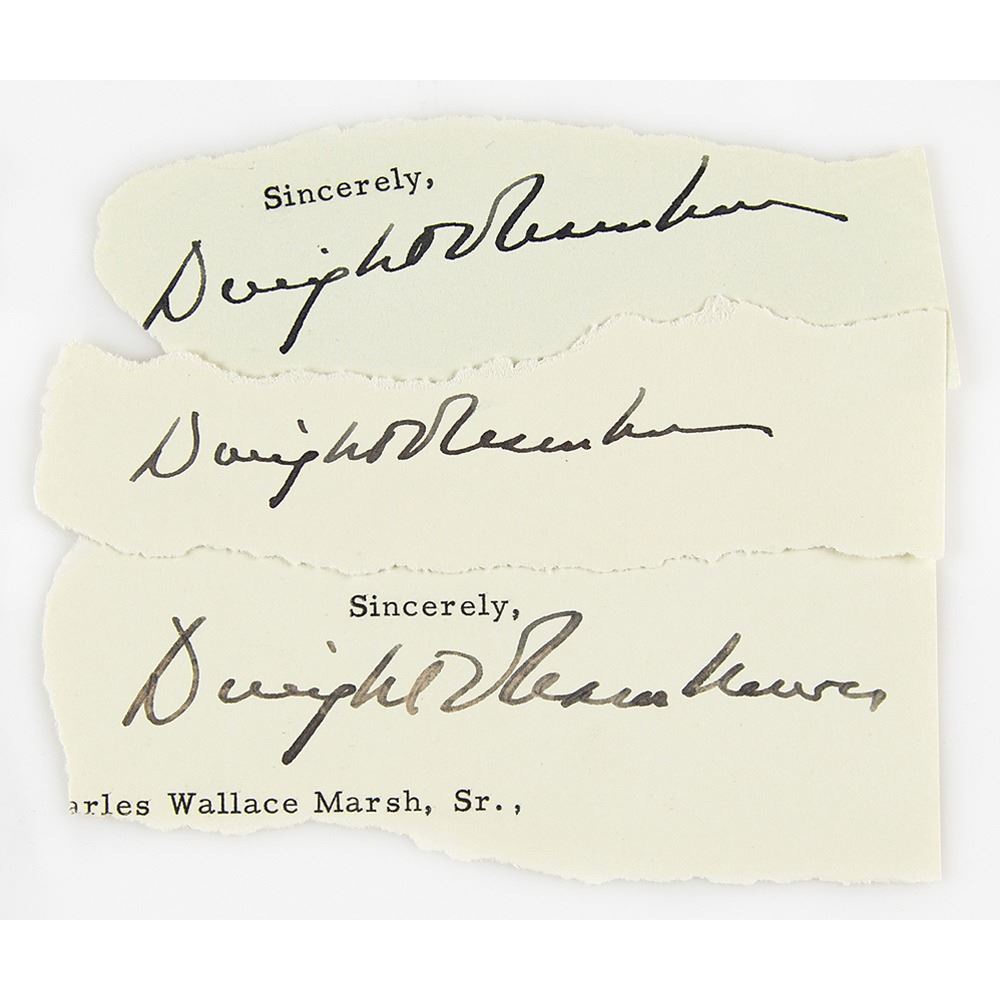 Sincerely,
Dwight D Eisenhower
Dwight D Eisenhower
Sincerely,
Dwight D Eisenhower
arles Wallace Marsh, Sr.,